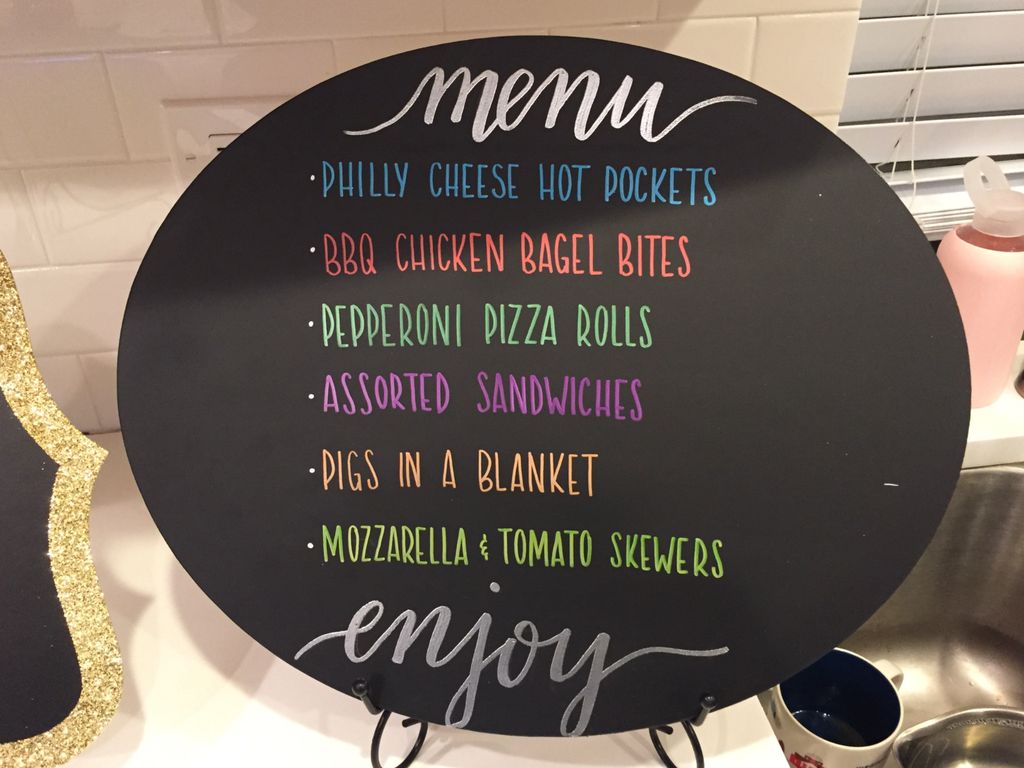 menu
· PHILLY CHEESE HOT POCKETS
· BBQ CHICKEN BAGEL BITES
· PEPPERONI PIZZA ROLLS
· ASSORTED SANDWICHES
· PIGS IN A BLANKET
· MOZZARELLA & TOMATO SKEWERS
enjoy